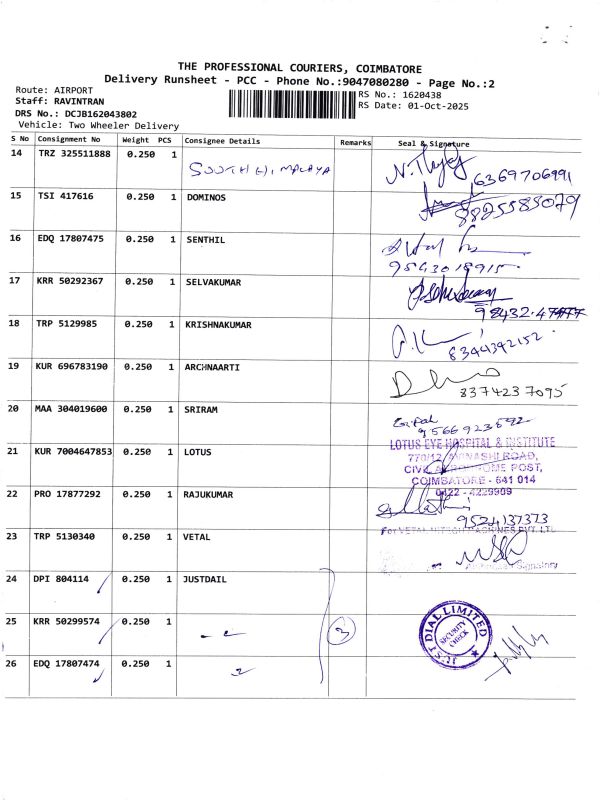 THE PROFESSIONAL COURIERS, COIMBATORE
Delivery Runsheet - PCC - Phone No.:9047080280 - Page No.:2
Route: AIRPORT
RS No.: 1620438
Staff: RAVINTRAN
RS Date: 01-Oct-2025
DRS No.: DCJB162043802
Vehicle: Two Wheeler Delivery
S No Consignment No Weight PCS Consignee Details Remarks Seal & Signature
14 TRZ 325511888 0.250 1 SOUTH HIMALAYA
6369706991
15 TSI 417616 0.250 1 DOMINOS
8825585079
16 EDQ 17807475 0.250 1 SENTHIL
9543018915
17 KRR 50292367 0.250 1 SELVAKUMAR
98432
18 TRP 5129985 0.250 1 KRISHNAKUMAR
8344342152
19 KUR 696783190 0.250 1 ARCHNAARTI
8374237095
20 MAA 304019600 0.250 1 SRIRAM
9566923592
LOTUS EYE HOSPITAL & INSTITUTE
21 KUR 7004647853 0.250 1 LOTUS
770/12, AVINASHI ROAD,
CIVIL AERODROME POST,
COIMBATORE - 641 014
0422 - 4229909
22 PRO 17877292 0.250 1 RAJUKUMAR
9524137373
23 TRP 5130340 0.250 1 VETAL
Authorised Signatory
24 DPI 804114 0.250 1 JUSTDAIL
25 KRR 50299574 0.250 1
3
JUST DIAL LIMITED
SECURITY CHECK
26 EDQ 17807474 0.250 1